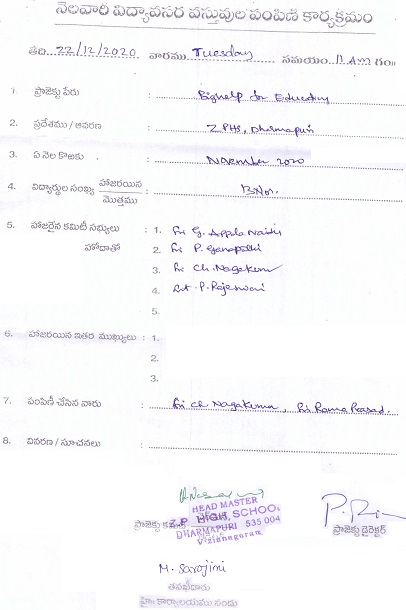 నెలవారీ విద్యావసర వస్తువుల పంపిణీ కార్యక్రమం
తేది 22/12/2020 వారము Tuesday సమయం 11 AM గం॥
1. ప్రాజెక్టు పేరు : Bighelp for Education
2. ప్రదేశము / ఆవరణ : ZPHS, Dharmapuri
3. ఏ నెల కొఱకు : November 2020
4. విద్యార్థుల సంఖ్య హాజరయిన / మొత్తము : 13 Nos.
5. హాజరైన కమిటీ సభ్యులు : 1. Sri G. Appala Naidu
హోదాతో 2. Sri P. Ganapathi
3. Sri Ch. Nagakumar
4. Smt. P. Rajeswari
5.
6. హాజరయిన ఇతర ముఖ్యులు : 1.
2.
3.
7. పంపిణీ చేసిన వారు : Sri Ch Nagakumar, Sri Rama Prasad.
8. వివరణ / సూచనలు :
HEAD MASTER
Z.P. HIGH SCHOOL
DHARMAPURI 535 004
Vizianagaram
ప్రాజెక్టు
ప్రాజెక్టు డైరెక్టర్
M. Sarojini